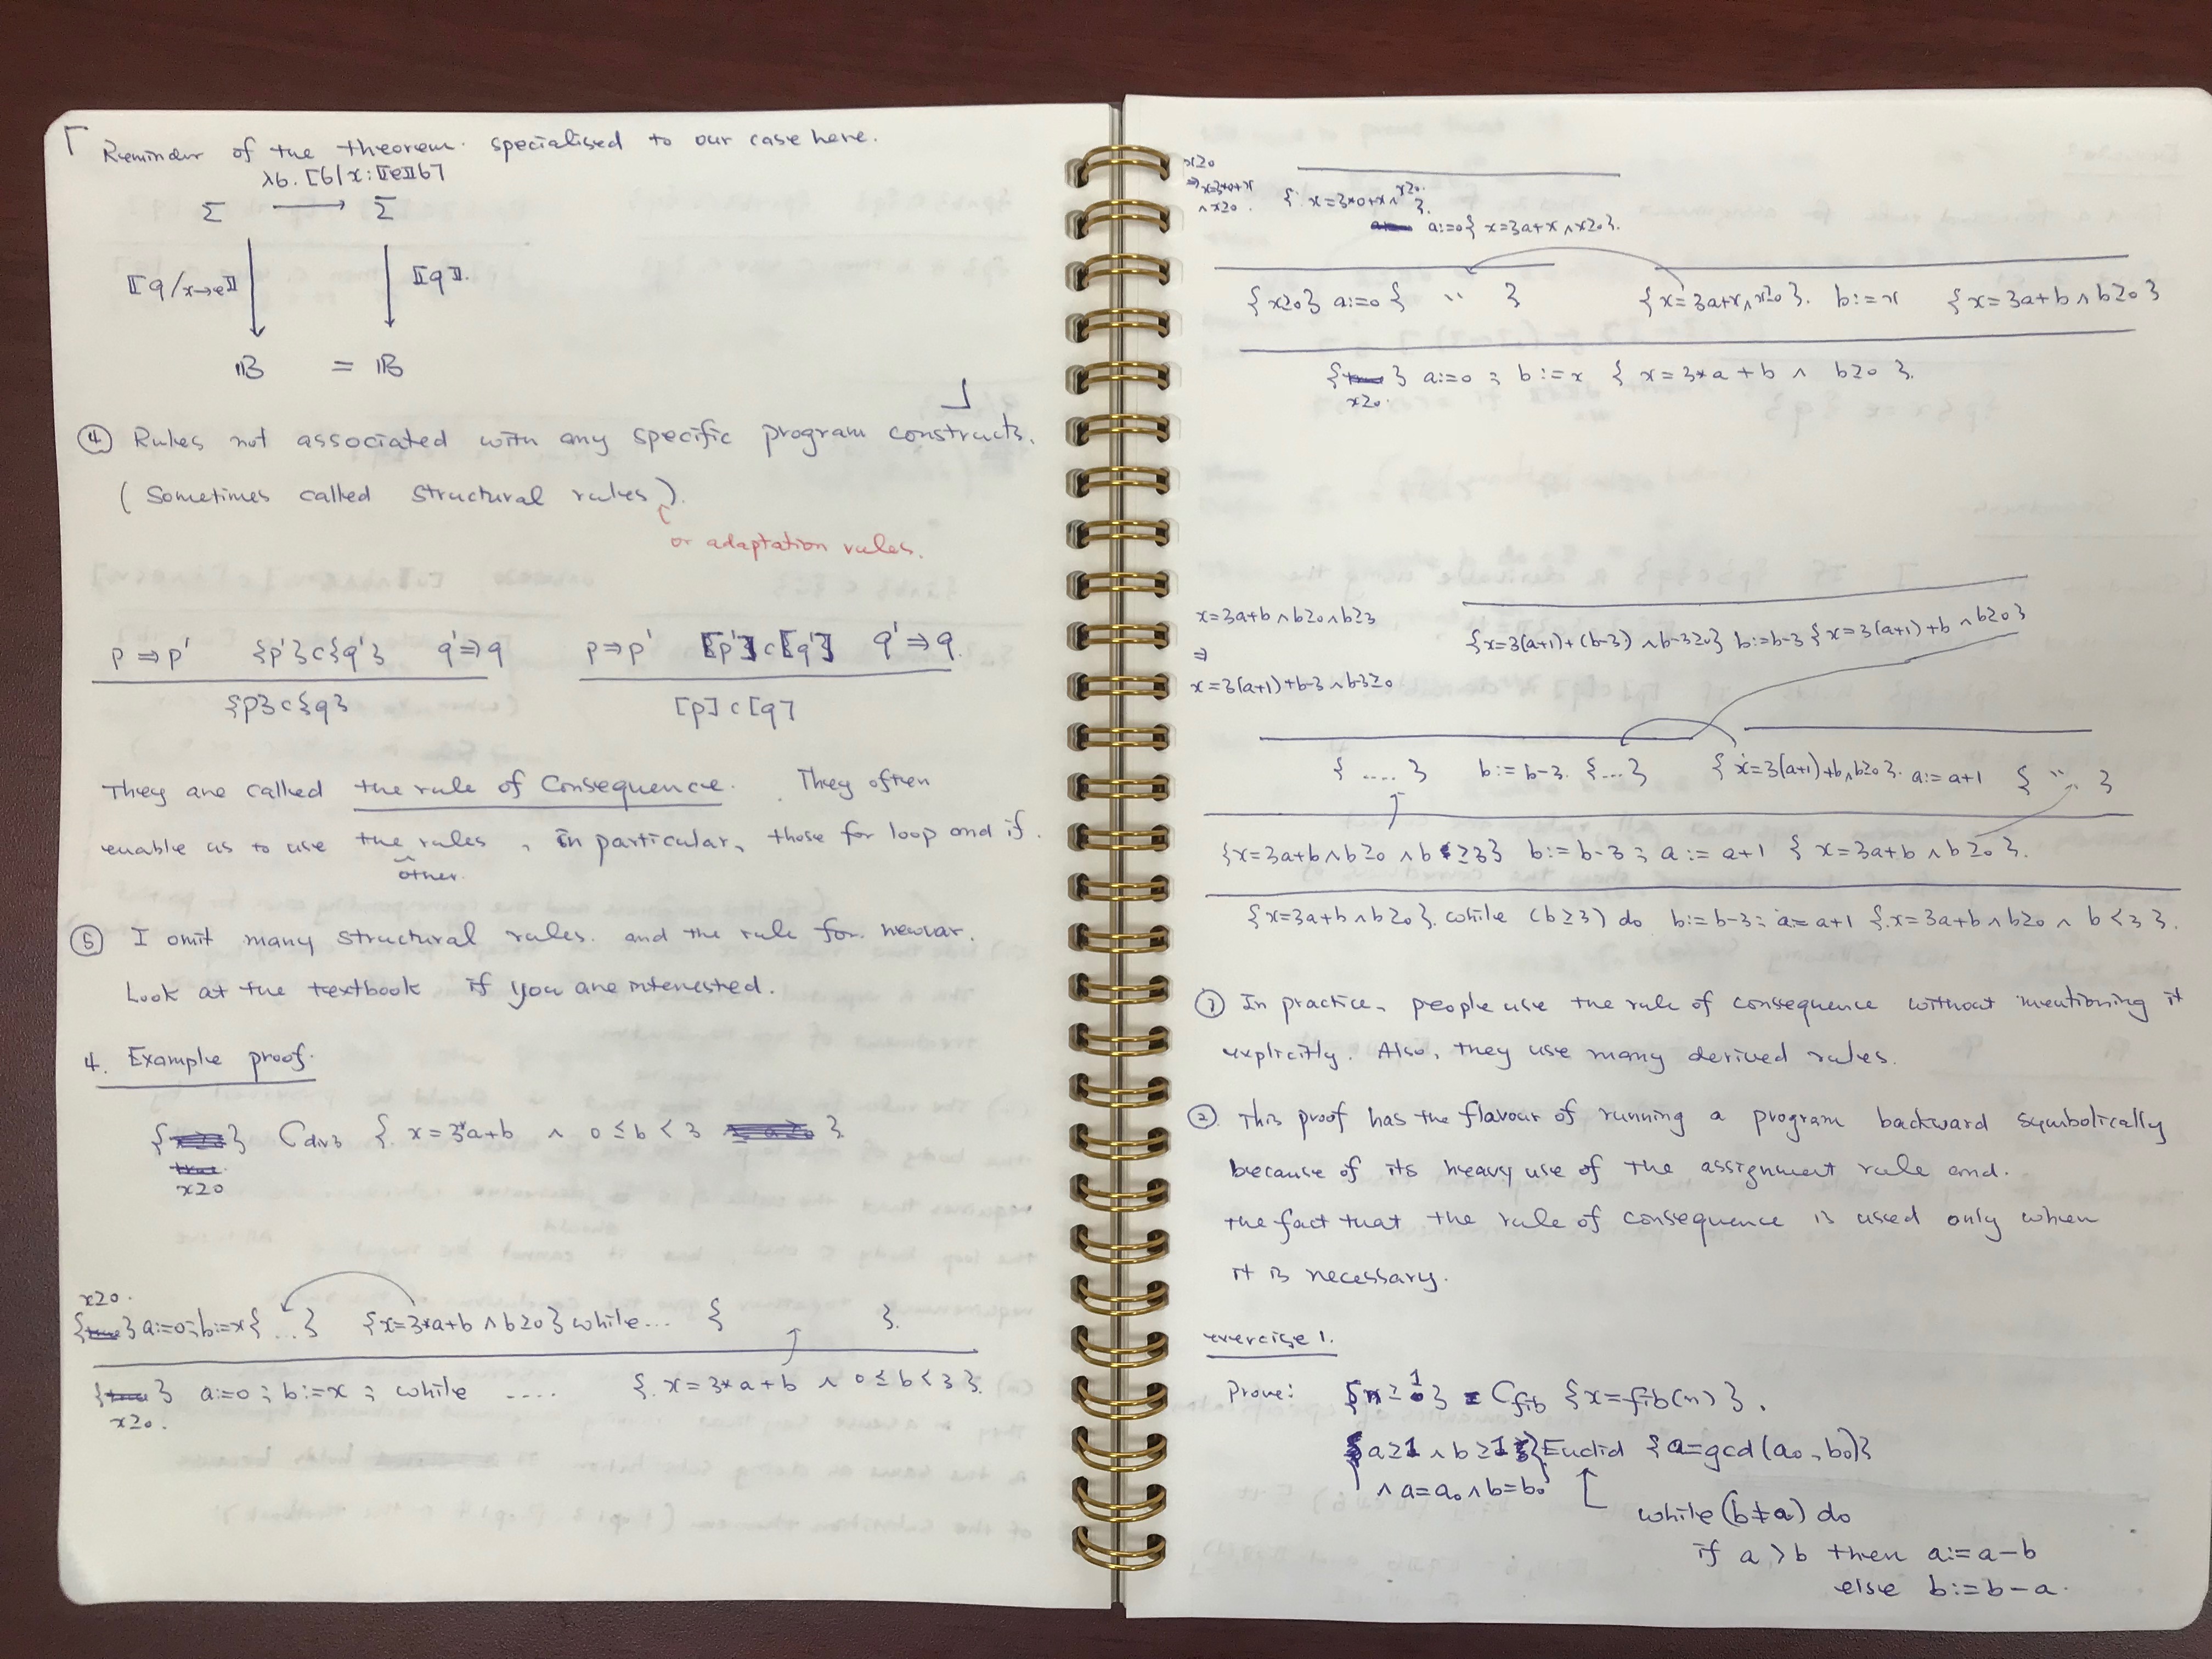 Reminder of the theorem. specialised to our case here.
λσ. [σ|x:⟦e⟧σ]
Σ ⟶ Σ
⟦q/x→e⟧ ⟦q⟧.
𝔹 = 𝔹
④ Rules not associated with any specific program constructs.
(Sometimes called structural rules).
or adaptation rules.
p⇒p' {p'}c{q'} q'⇒q p⇒p' [p']c[q'] q'⇒q.
{p}c{q} [p]c[q]
They are called the rule of Consequence. They often
enable us to use the rules, in particular, those for loop and if.
other.
⑤ I omit many structural rules. and the rule for newvar.
Look at the textbook if you are interested.
4. Example proof.
{ } Cdiv3 { x=3*a+b ∧ 0≤b<3 }
x≥0
x≥0.
{ } a:=0; b:=x { ... } {x=3*a+b ∧ b≥0} while... { }.
{ } a:=0; b:=x; while .... { x=3*a+b ∧ 0≤b<3 }.
x≥0.
x≥0
⇒x=3*0+x
∧ x≥0.
{ x=3*0+x ∧ x≥0. }.
a:=0 { x=3a+x ∧ x≥0 }.
{x≥0} a:=0 { " } {x=3a+x ∧ x≥0}. b:=x {x=3a+b ∧ b≥0}
{ } a:=0 ; b:=x { x=3*a+b ∧ b≥0 }.
x≥0.
x=3a+b ∧ b≥0 ∧ b≥3
⇒
x=3(a+1)+b-3 ∧ b-3≥0
{x=3(a+1)+(b-3) ∧ b-3≥0} b:=b-3 {x=3(a+1)+b ∧ b≥0}
{ .... } b:=b-3. {...} {x=3(a+1)+b ∧ b≥0}. a:=a+1 { " }
{x=3a+b ∧ b≥0 ∧ b≥3} b:=b-3 ; a:=a+1 { x=3a+b ∧ b≥0 }.
{x=3a+b ∧ b≥0}. while (b≥3) do b:=b-3; a:=a+1 {x=3a+b ∧ b≥0 ∧ b<3}.
① In practice, people use the rule of consequence without mentioning it
explicitly. Also, they use many derived rules.
② This proof has the flavour of running a program backward symbolically
because of its heavy use of the assignment rule and.
the fact that the rule of consequence is used only when
it is necessary.
exercise 1.
Prove: {n≥1} Cfib {x=fib(n)}.
{a≥1 ∧ b≥1 } Euclid {a=gcd(a₀, b₀)}
∧ a=a₀ ∧ b=b₀
while (b≠a) do
if a>b then a:=a-b
else b:=b-a.